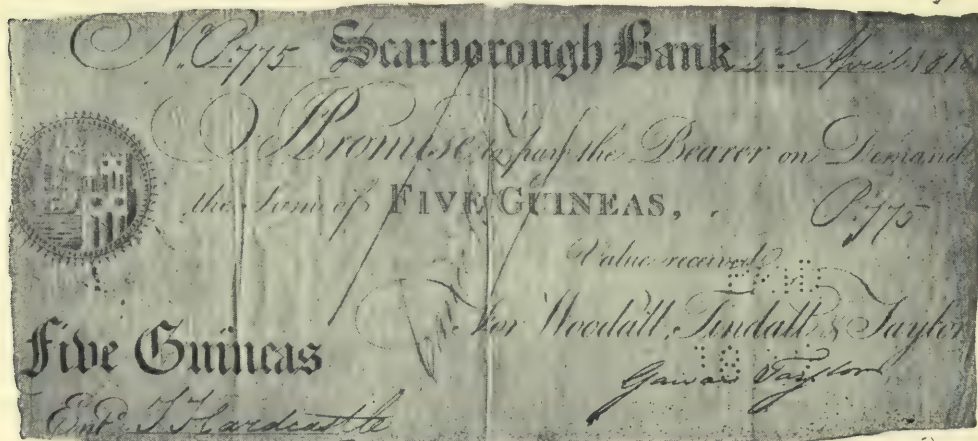 No. P.775 Scarborough Bank 3rd April 1818
I Promise to pay the Bearer on Demand
the Sum of FIVE GUINEAS, P.775
Value received
For Woodall, Tindall & Taylor
Five Guineas
Taylor
Entd. T Hardcastle